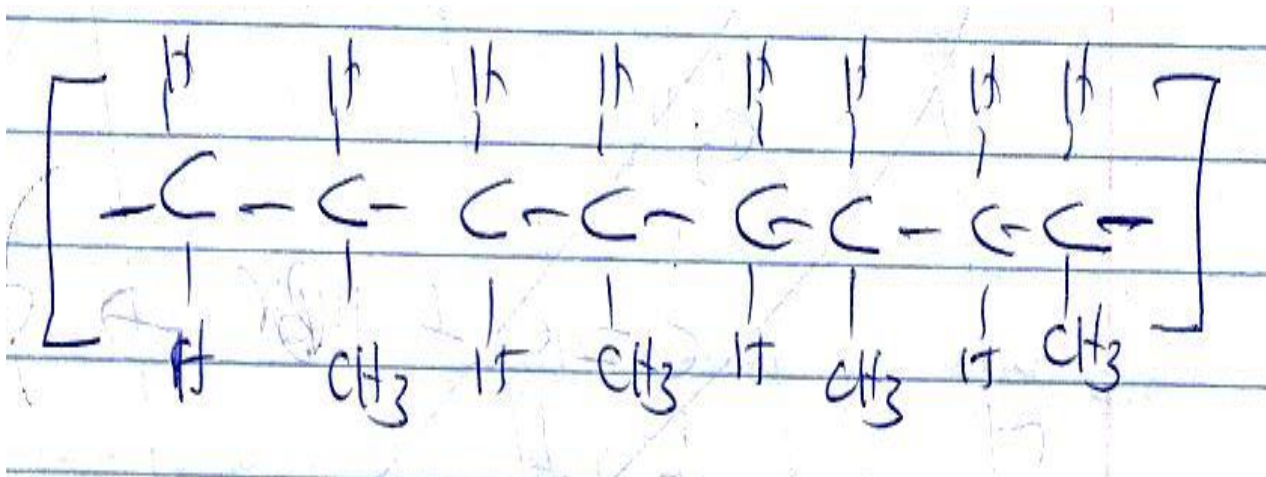 H H H H H H H H
[ - C - C - C - C - C - C - C - C - ]
H CH3 H CH3 H CH3 H CH3